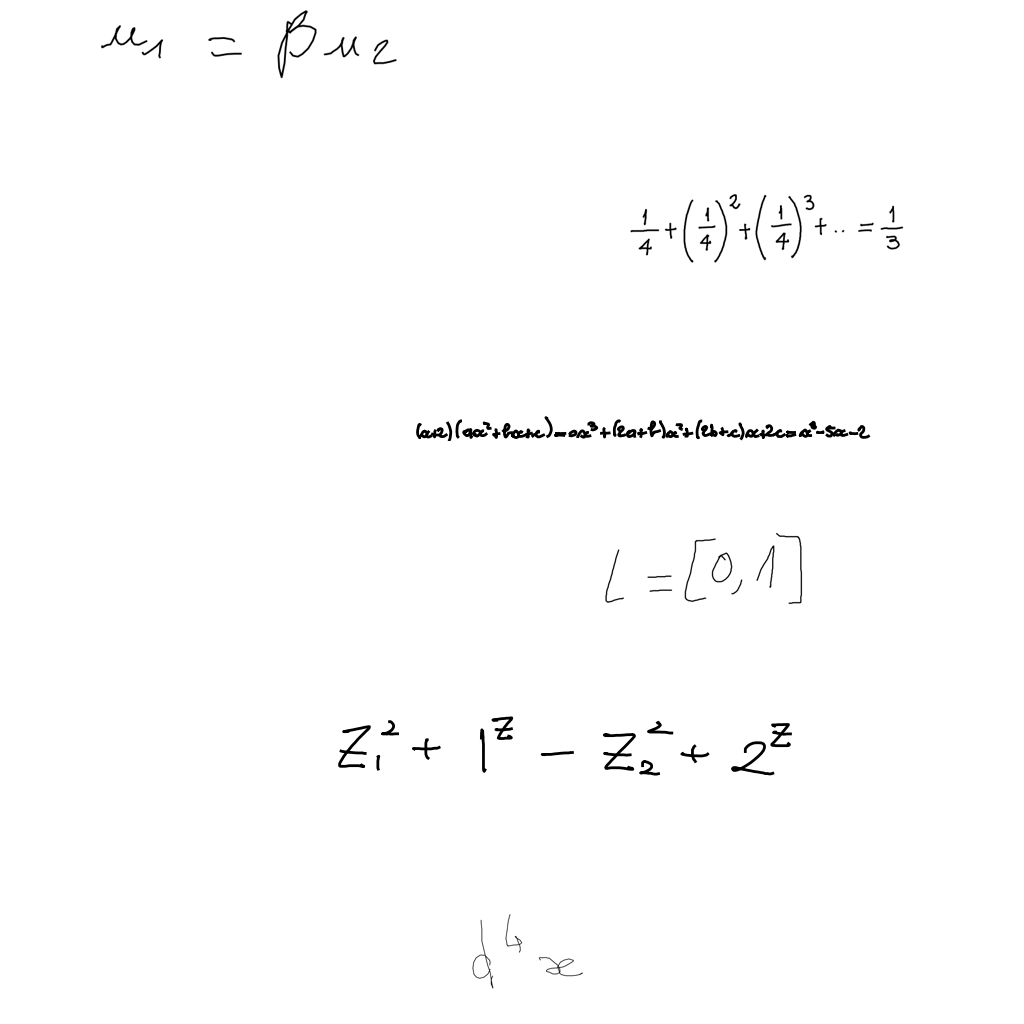 u₁ = βu₂
1/4 + (1/4)² + (1/4)³ + .. = 1/3
(x+2)(ax²+bx+c)=ax³+(2a+b)x²+(2b+c)x+2c=x³-5x-2
L = [0, 1]
Z₁² + 1^Z - Z₂² + 2^Z
d⁴x